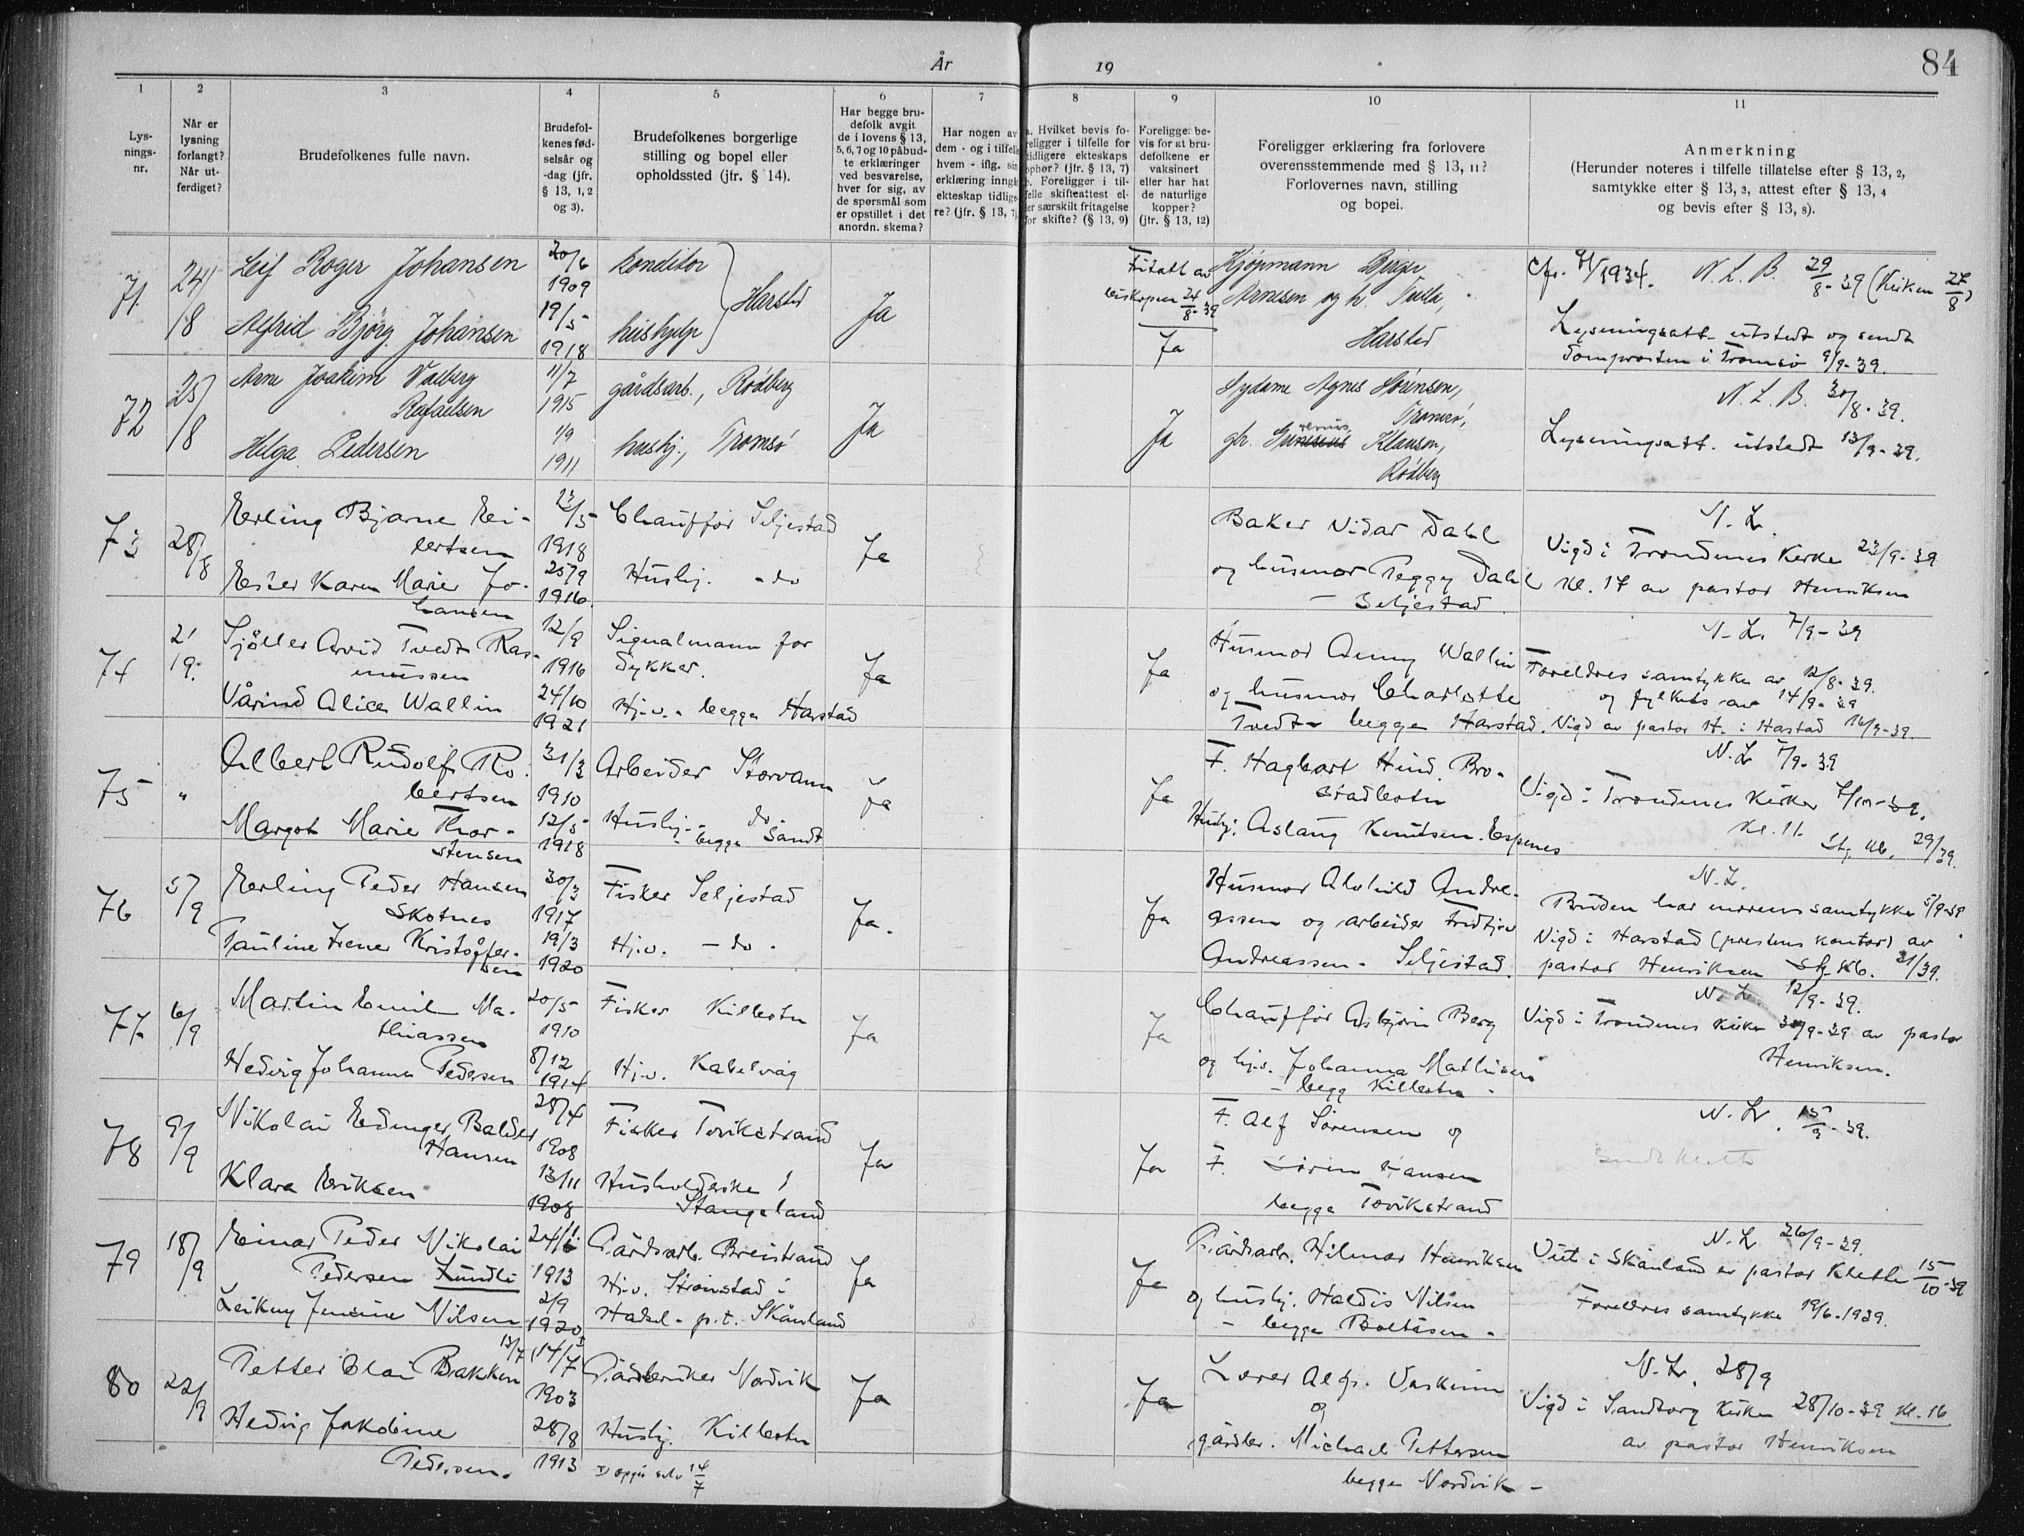 År
19
84
1
2
3
4
5
6
7
8
9
10
11
Lys-
nings-
nr.
Når er
lysning
forlangt?
Når ut-
ferdiget?
Brudefolkenes fulle navn.
Brudefol-
kenes fød-
selsår og
-dag (jfr.
§ 13, 1, 2
og 3).
Brudefolkenes borgerlige
stilling og bopel eller
opholdssted (jfr. § 14).
Har begge bru-
defolk avgit
de i lovens § 13,
5, 6, 7 og 10 påbud-
te erklæringer
ved besvarelse,
hver for sig, av
de spørsmål som
er opstillet i det
anordn. skema?
Har nogen av
dem - og i tilfelle
hvem - iflg. sin
erklæring inngå
ekteskap tidlige
re? (jfr. § 13, 7).
a. Hvilket bevis fo-
religger i tilfelle for
tidligere ekteskaps
ophør? (jfr. § 13, 7)
b. Foreligger i til-
felle skifteattest el-
ler særskilt fritagelse
for skifte? (§ 13, 9)
Foreligger be-
vis for at bru-
defolkene er
vaksinert
eller har hat
de naturlige
kopper?
(jfr. § 13, 12)
Foreligger erklæring fra forlovere
overensstemmende med § 13, 11?
Forlovernes navn, stilling
og bopel.
Anmerkning
(Herunder noteres i tilfelle tillatelse efter § 13, 2,
samtykke efter § 13, 3, attest efter § 13, 4
og bevis efter § 13, 8).
71.
24/8
Leif Roger Johansen
20/6
1909
konditor
Alfrid Bjørg Johansen
19/5
1918
hushjelp
Harstad
Ja
Fritatt av
biskopen 24/8-39
Ja
Kjøpmann Birger
Arnesen og h. Trella,
Harstad
N. L. B. 29/8-39 (Kirken 27/8)
Lysningsatt. utstedt og sendt
domprosten i Tromsø 9/9-39.
72
25/8
Arne Joakim Valberg
Rafaelsen
11/7
1915
gårdsarb., Rødberg
Helga Pedersen
1/9
1911
hushj., Tromsø
Ja
Ja
Sydame Agnes Sørensen,
Tromsø,
Klausen,
Rødberg
N. L. B. 30/8-39.
Lysningsatt. utstedt 13/9-39.
73
28/8
Erling Bjarne Ei-
lertsen
23/5
1918
Chauffør Seljestad
Ester Karen Marie Jo-
hansen
25/9
1916.
Hushj. - do
Ja
Baker Vidar Dahl
og husmor Peggy Dahl
- Seljestad.
N. L.
Vigd i Trondenes Kirke 23/9-39
kl. 17 av pastor Henriksen
74
2/9.
Sjøller Arvid Tvedt Ras-
mussen
12/9
1916
Signalmann for
dykker.
Vårind Alice Wallin
24/10
1921
Hj.v. - begge Harstad
Ja
Ja
Husmor Wallin
og husmor Charlotte
Tvedt - begge Harstad.
N. L. 7/9-39
Foreldres samtykke av 12/8-39.
og fylkets av 14/9-39
Vigd av pastor H. i Harstad 16/9-39.
75
"
Albert Rudolf Ro-
bertsen
31/3
1910
Arbeider Storvann
Margot Marie Thor-
stensen
12/5
1918
Hushj. - do
- begge Sandt
Ja
Ja
F. Hagbart Hind. Bro-
stadbotn
Hushj. Aslaug Knutsen. Espenes
N. L. 7/9-39
Vigd i Trondenes Kirke
kl. 11.
29/39.
76
5/9
Erling Peder Hansen
Skotnes
30/3
1917
Fisker Seljestad
Pauline Irene Kristoffer-
sen
19/3
1920
Hj.v. - do -
Ja.
Ja
Husmor Alvhild Andre-
assen og arbeider Fridtjov
Andreassen - Seljestad.
N. L.
Bruden har morens samtykke 5/9-39
Vigd i Harstad (prestens kontor) av
pastor Henriksen Stj. Kb. 31/39.
77.
6/9
Martin Emil Ma-
thiassen
20/5
1910
Fisker Kilbotn
Hedvig Johanne Pedersen
8/12
1914
Hj.v. Kabelvåg
Ja
Ja
Chauffør Asbjørn Berg
og hj.v. Johanna Mathisen
- begg Kilbotn -
N. L. 12/9-39.
Vigd i Trondenes kirke 30/9-39 av pastor
Henriksen.
78
9/9
Nikolai Edinger Balder
Hansen
28/4
1908
Fisker Tovikstrand
Klara Eriksen
13/11
1908
Husholderske i
Stangeland
Ja
Ja
F. Alf Sørensen og
F. Sørin Hansen
begge Tovikstrand
N. L. 15/9-39.
79
18/9
Einar Peder Nikolai
Pedersen Lundli
24/6
1913
Gårdsarb. Breistrand
Leikny Jensine Nilsen
2/9
1920
Hj.v. Strønstad i
Hadsel - p.t. Skånland
Ja
Ja
Gårdsarb. Hilmar Henriksen
og hushj. Haldis Nilsen
- begge Boltåsen -
N. L. 26/9-39.
Viet i Skånland av pastor Klette 15/10-39
Foreldres samtykke 19/6-1939.
80
22/9
Petter Olai Bakken
13/7 (14/7
1903
Gårdbruker Nordvik
Hedvig Jakobine
Pedersen.
28/8
1913
Hushj. Kilbotn
1) oppgis selv 14/7
Ja
Ja
Lærer Alfr. Vaskinn
og
gårdbr. Michael Pettersen
begge Nordvik -
N. L. 28/9
Vigd i Sandtorg Kirke 28/10-39 kl. 16
av pastor Henriksen